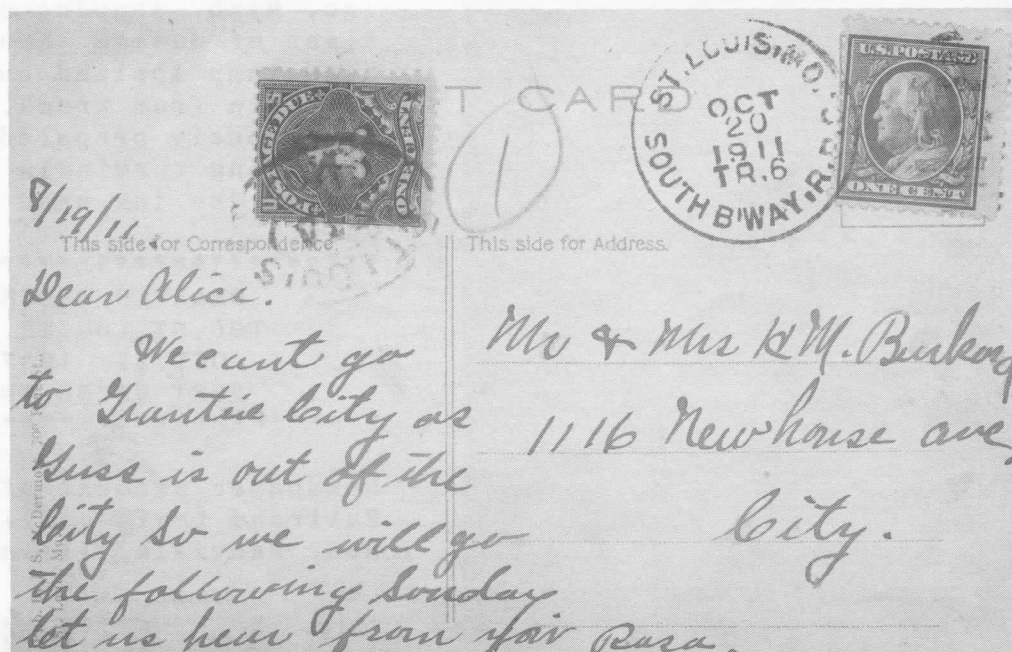 POST CARD
1
ST. LOUIS, MO.
OCT
20
1911
TR.6
SOUTH B'WAY. R.P.O.
U.S. POSTAGE
ONE CENT
POSTAGE DUE
ONE CENT
8/19/11
This side for Correspondence.
This side for Address.
Dear Alice.
We cant go
to Grantie City as
Guss is out of the
City so we will go
the following Sonday
let us hear from you Rosa.
Mr & Mrs H M.
1116 Newhouse ave,
City.